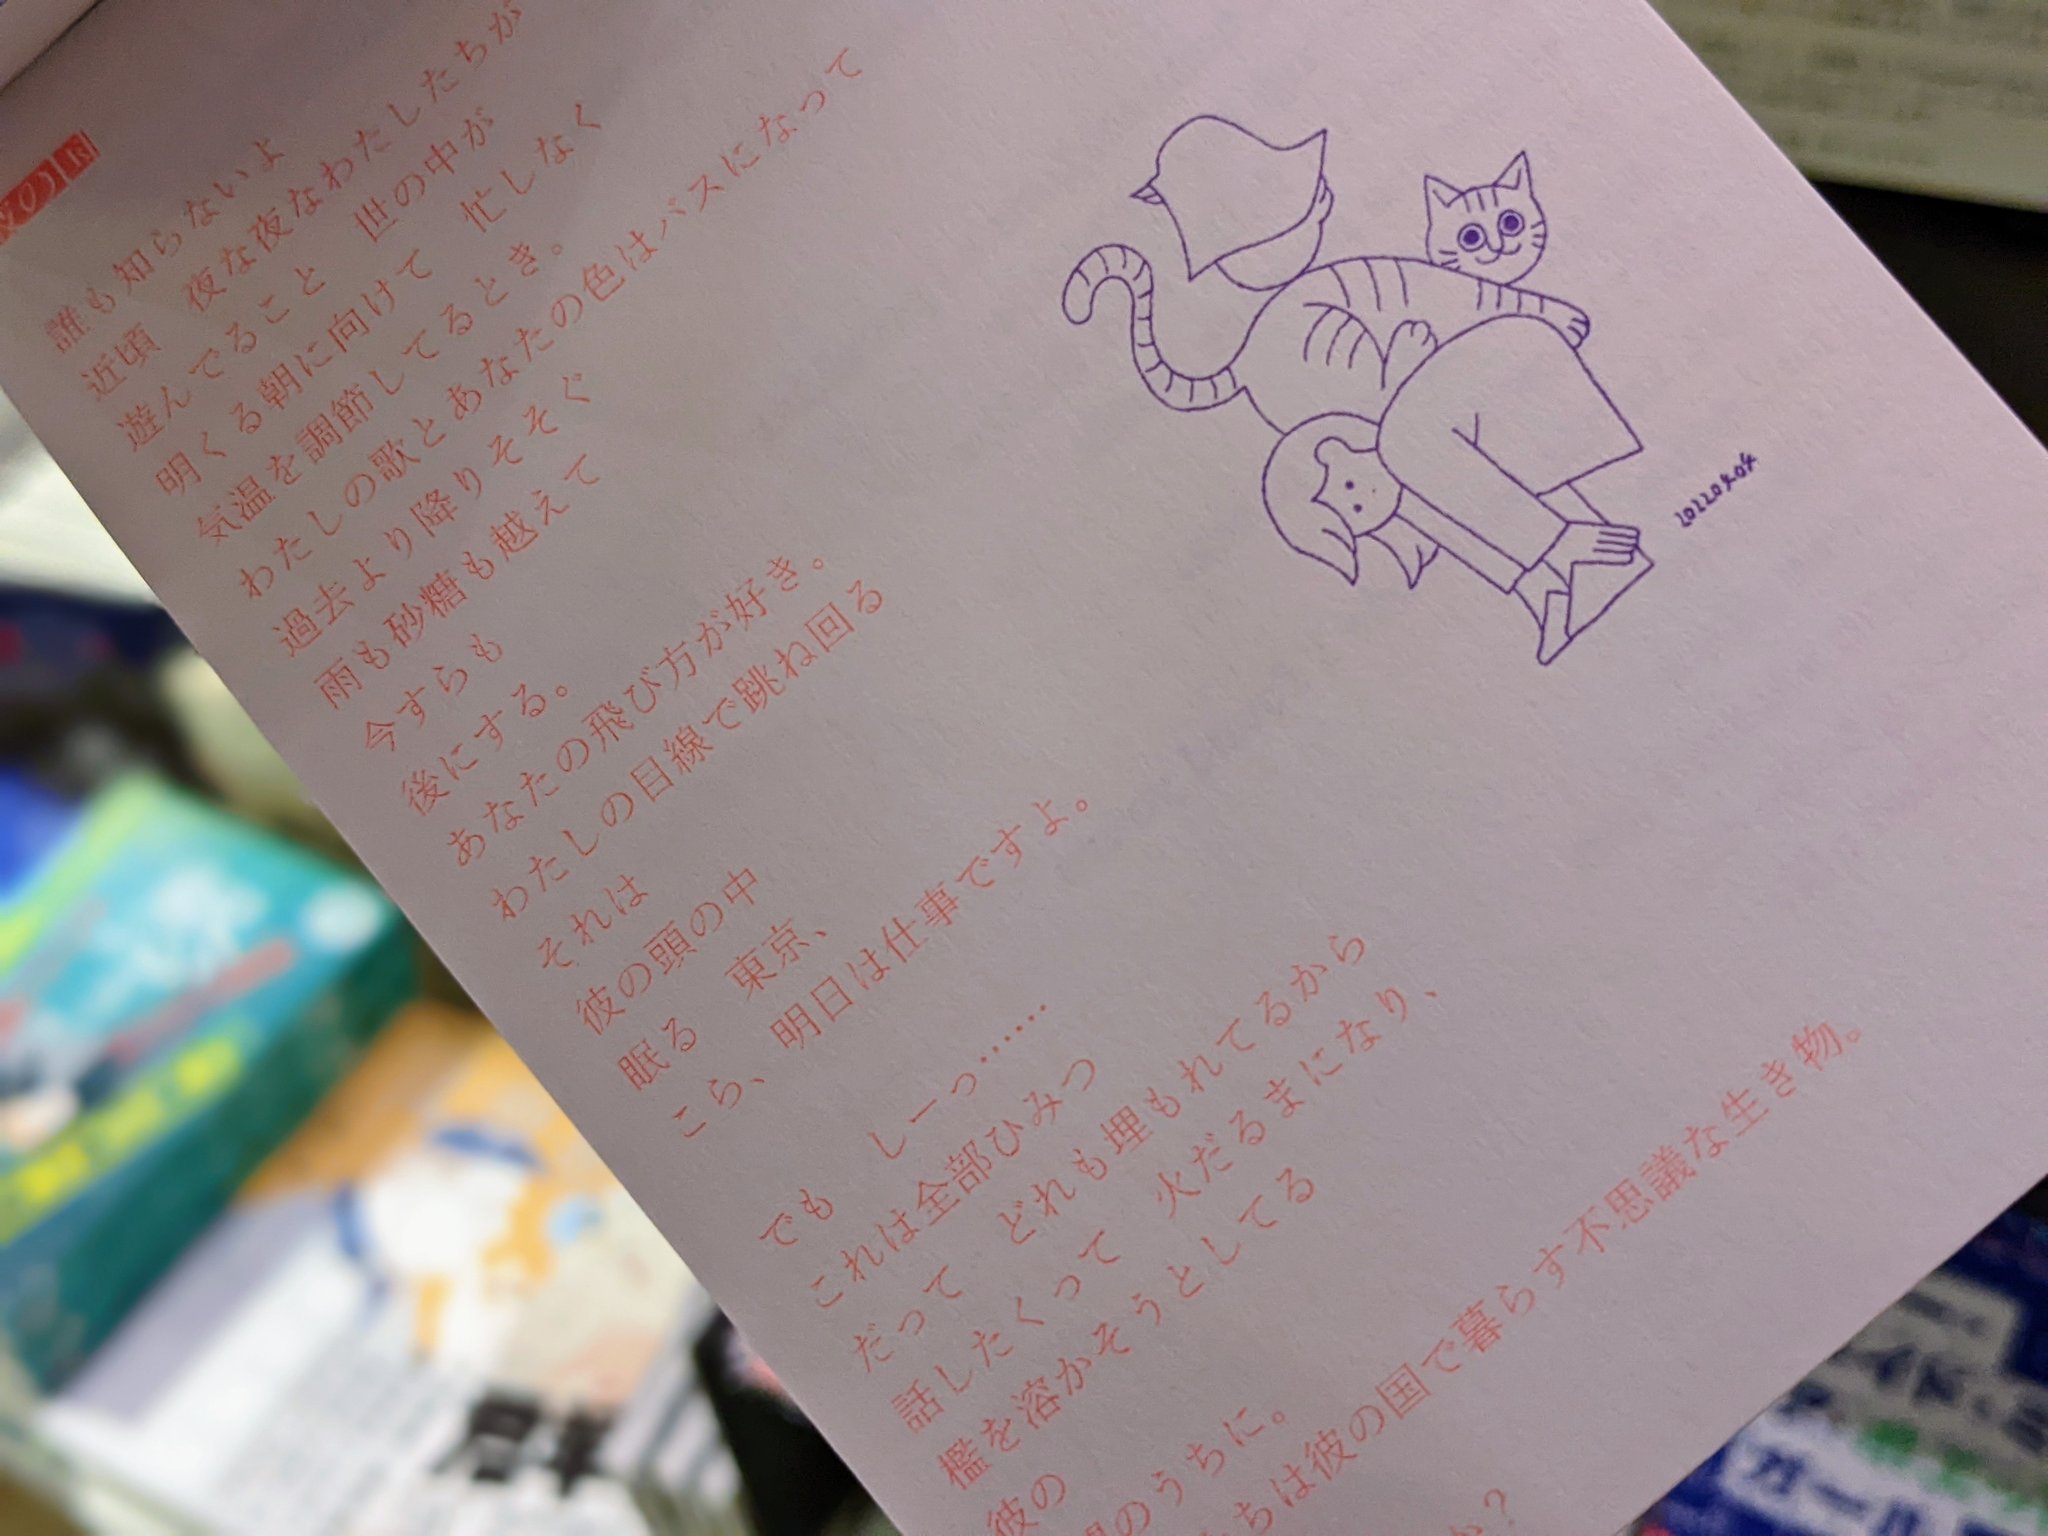 誰も知らないよ
近頃　夜な夜なわたしたちが
遊んでること　世の中が
明くる朝に向けて　忙しなく
気温を調節してるとき。
わたしの歌とあなたの色はバスになって
過去より降りそそぐ
雨も砂糖も越えて
今すらも
後にする。
あなたの飛び方が好き。
わたしの目線で跳ね回る
それは
彼の頭の中
眠る　東京、
こら、明日は仕事ですよ。
でも　しーっ……
これは全部ひみつ
だって　どれも埋もれてるから
話したくって　火だるまになり、
檻を溶かそうとしてる
彼の
のうちに。
ちは彼の国で暮らす不思議な生き物。
か？
20220404